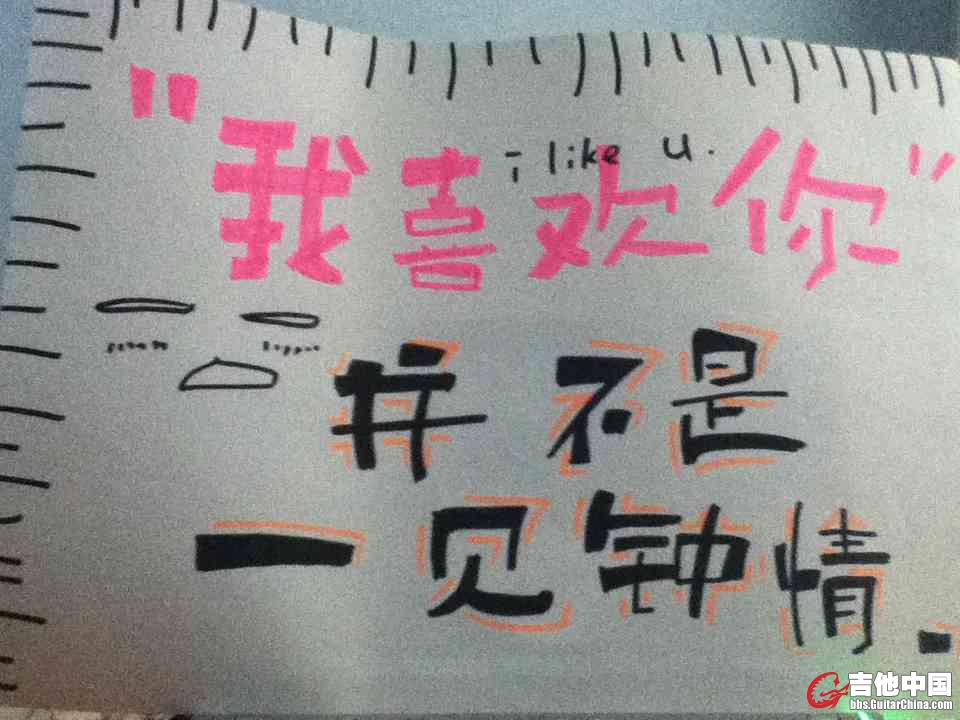 i like u.
"我喜欢你"
并不是
一见钟情.
吉他中国
bbs.GuitarChina.com